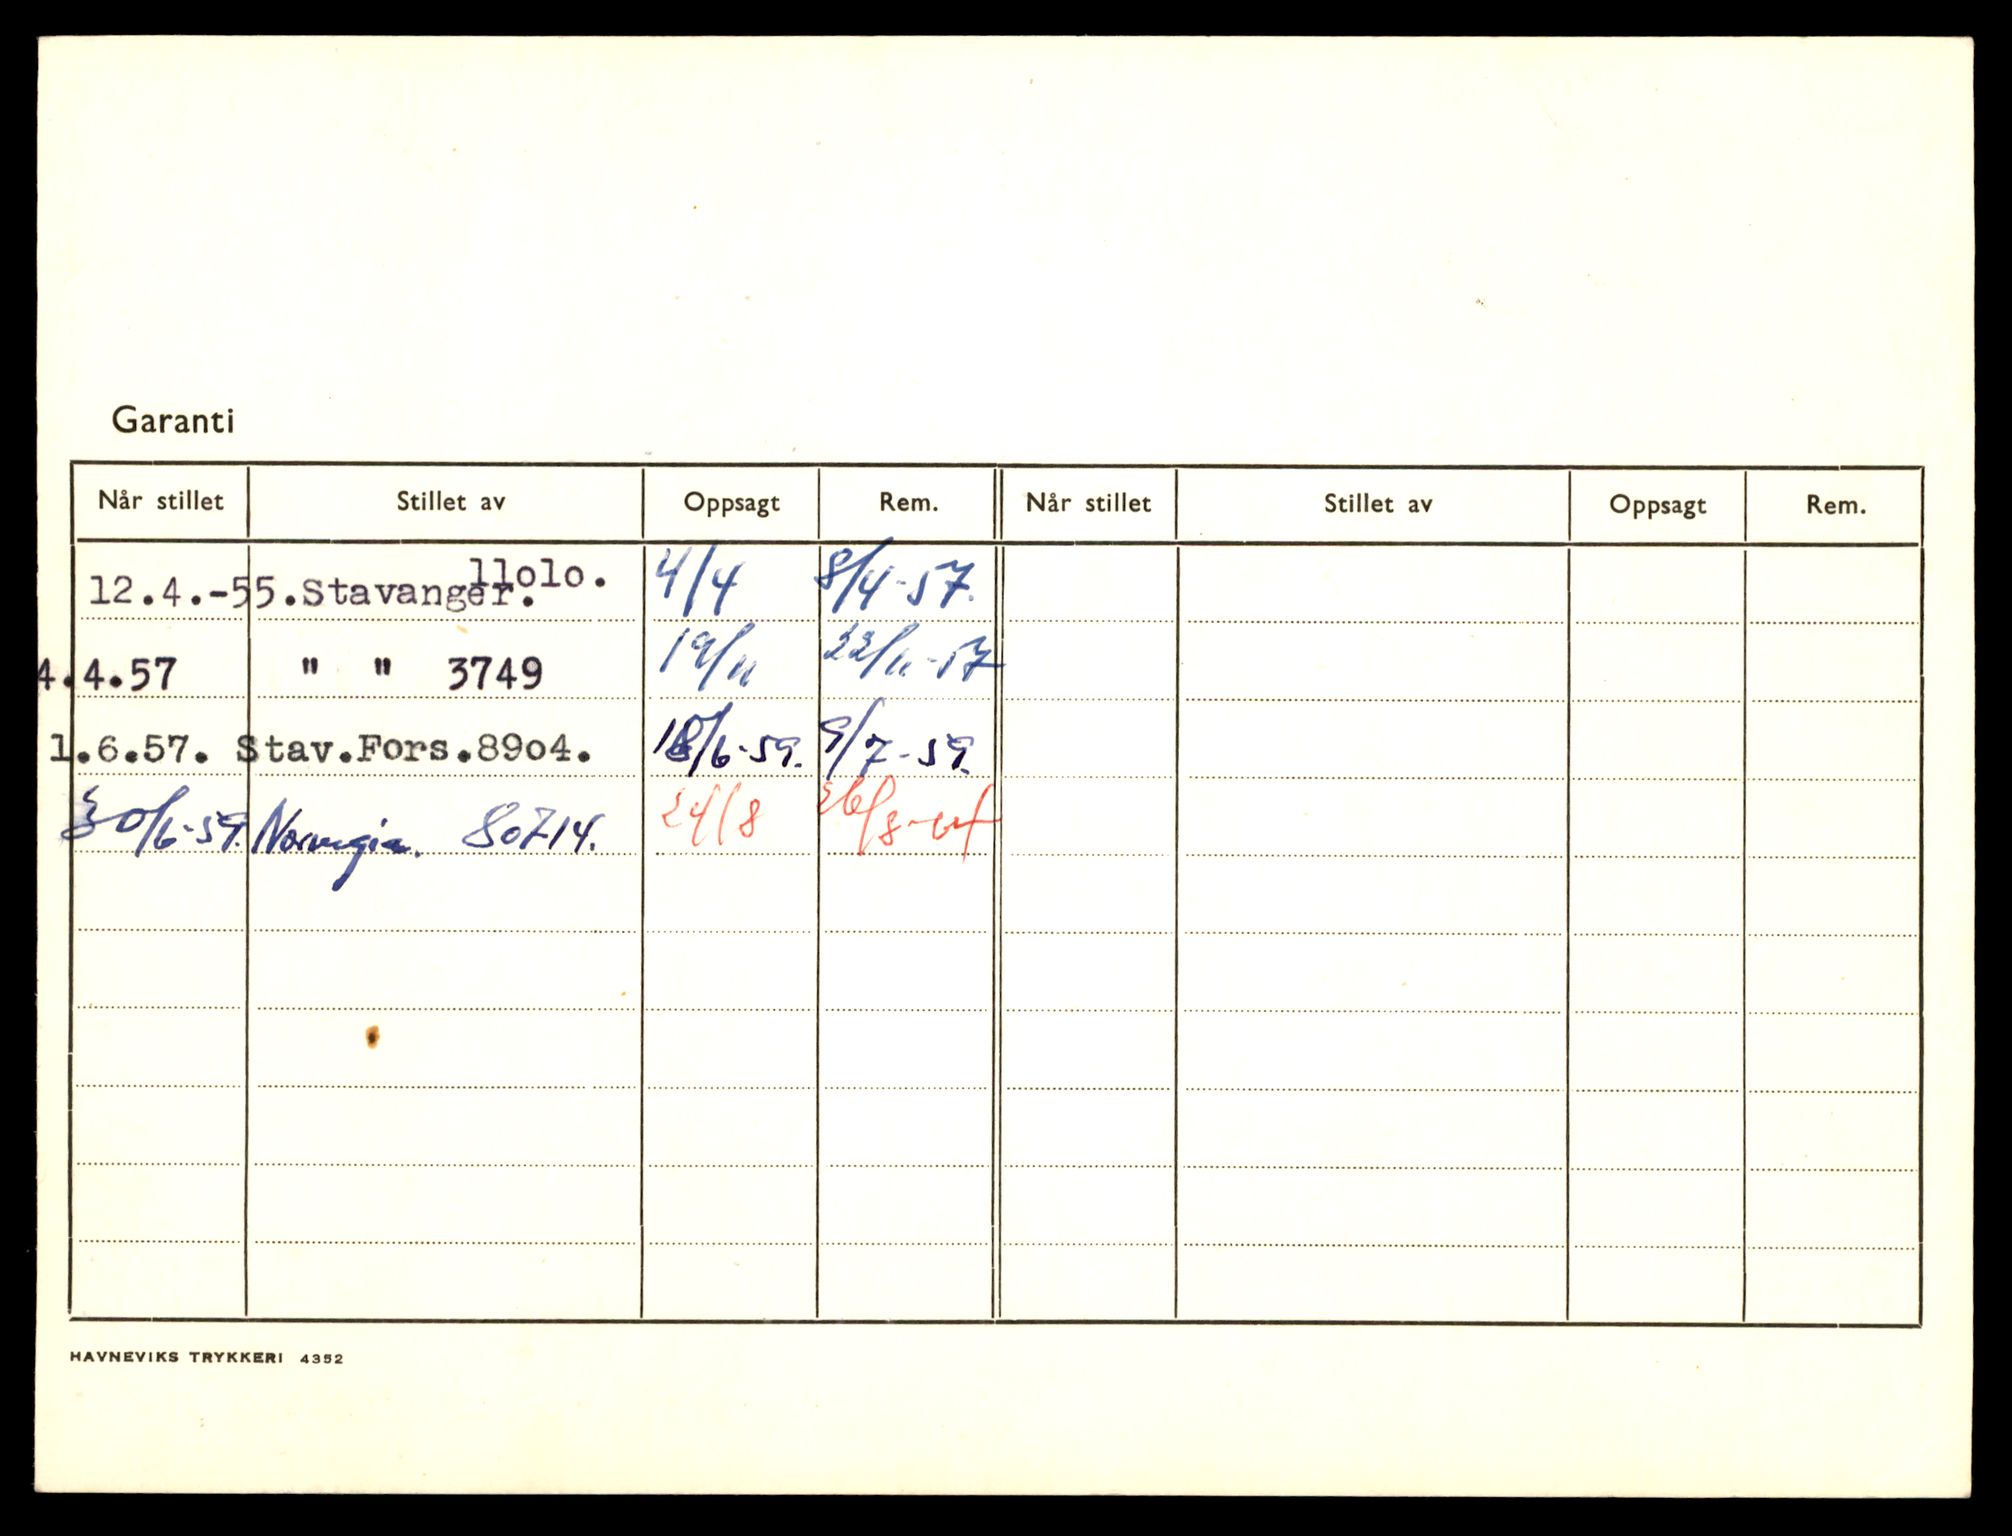 Garanti
Når stillet Stillet av Oppsagt Rem. Når stillet Stillet av Oppsagt Rem.
12.4.-55. Stavanger. llolo. 4/4 8/4-57.
4.4.57 " " 3749 19/11 22/11-57
1.6.57. Stav.Fors.89o4. 18/6-59. 9/7-59.
30/6-59. Norvegia. 80714. 24/8 26/8-
HAVNEVIKS TRYKKERI 4352